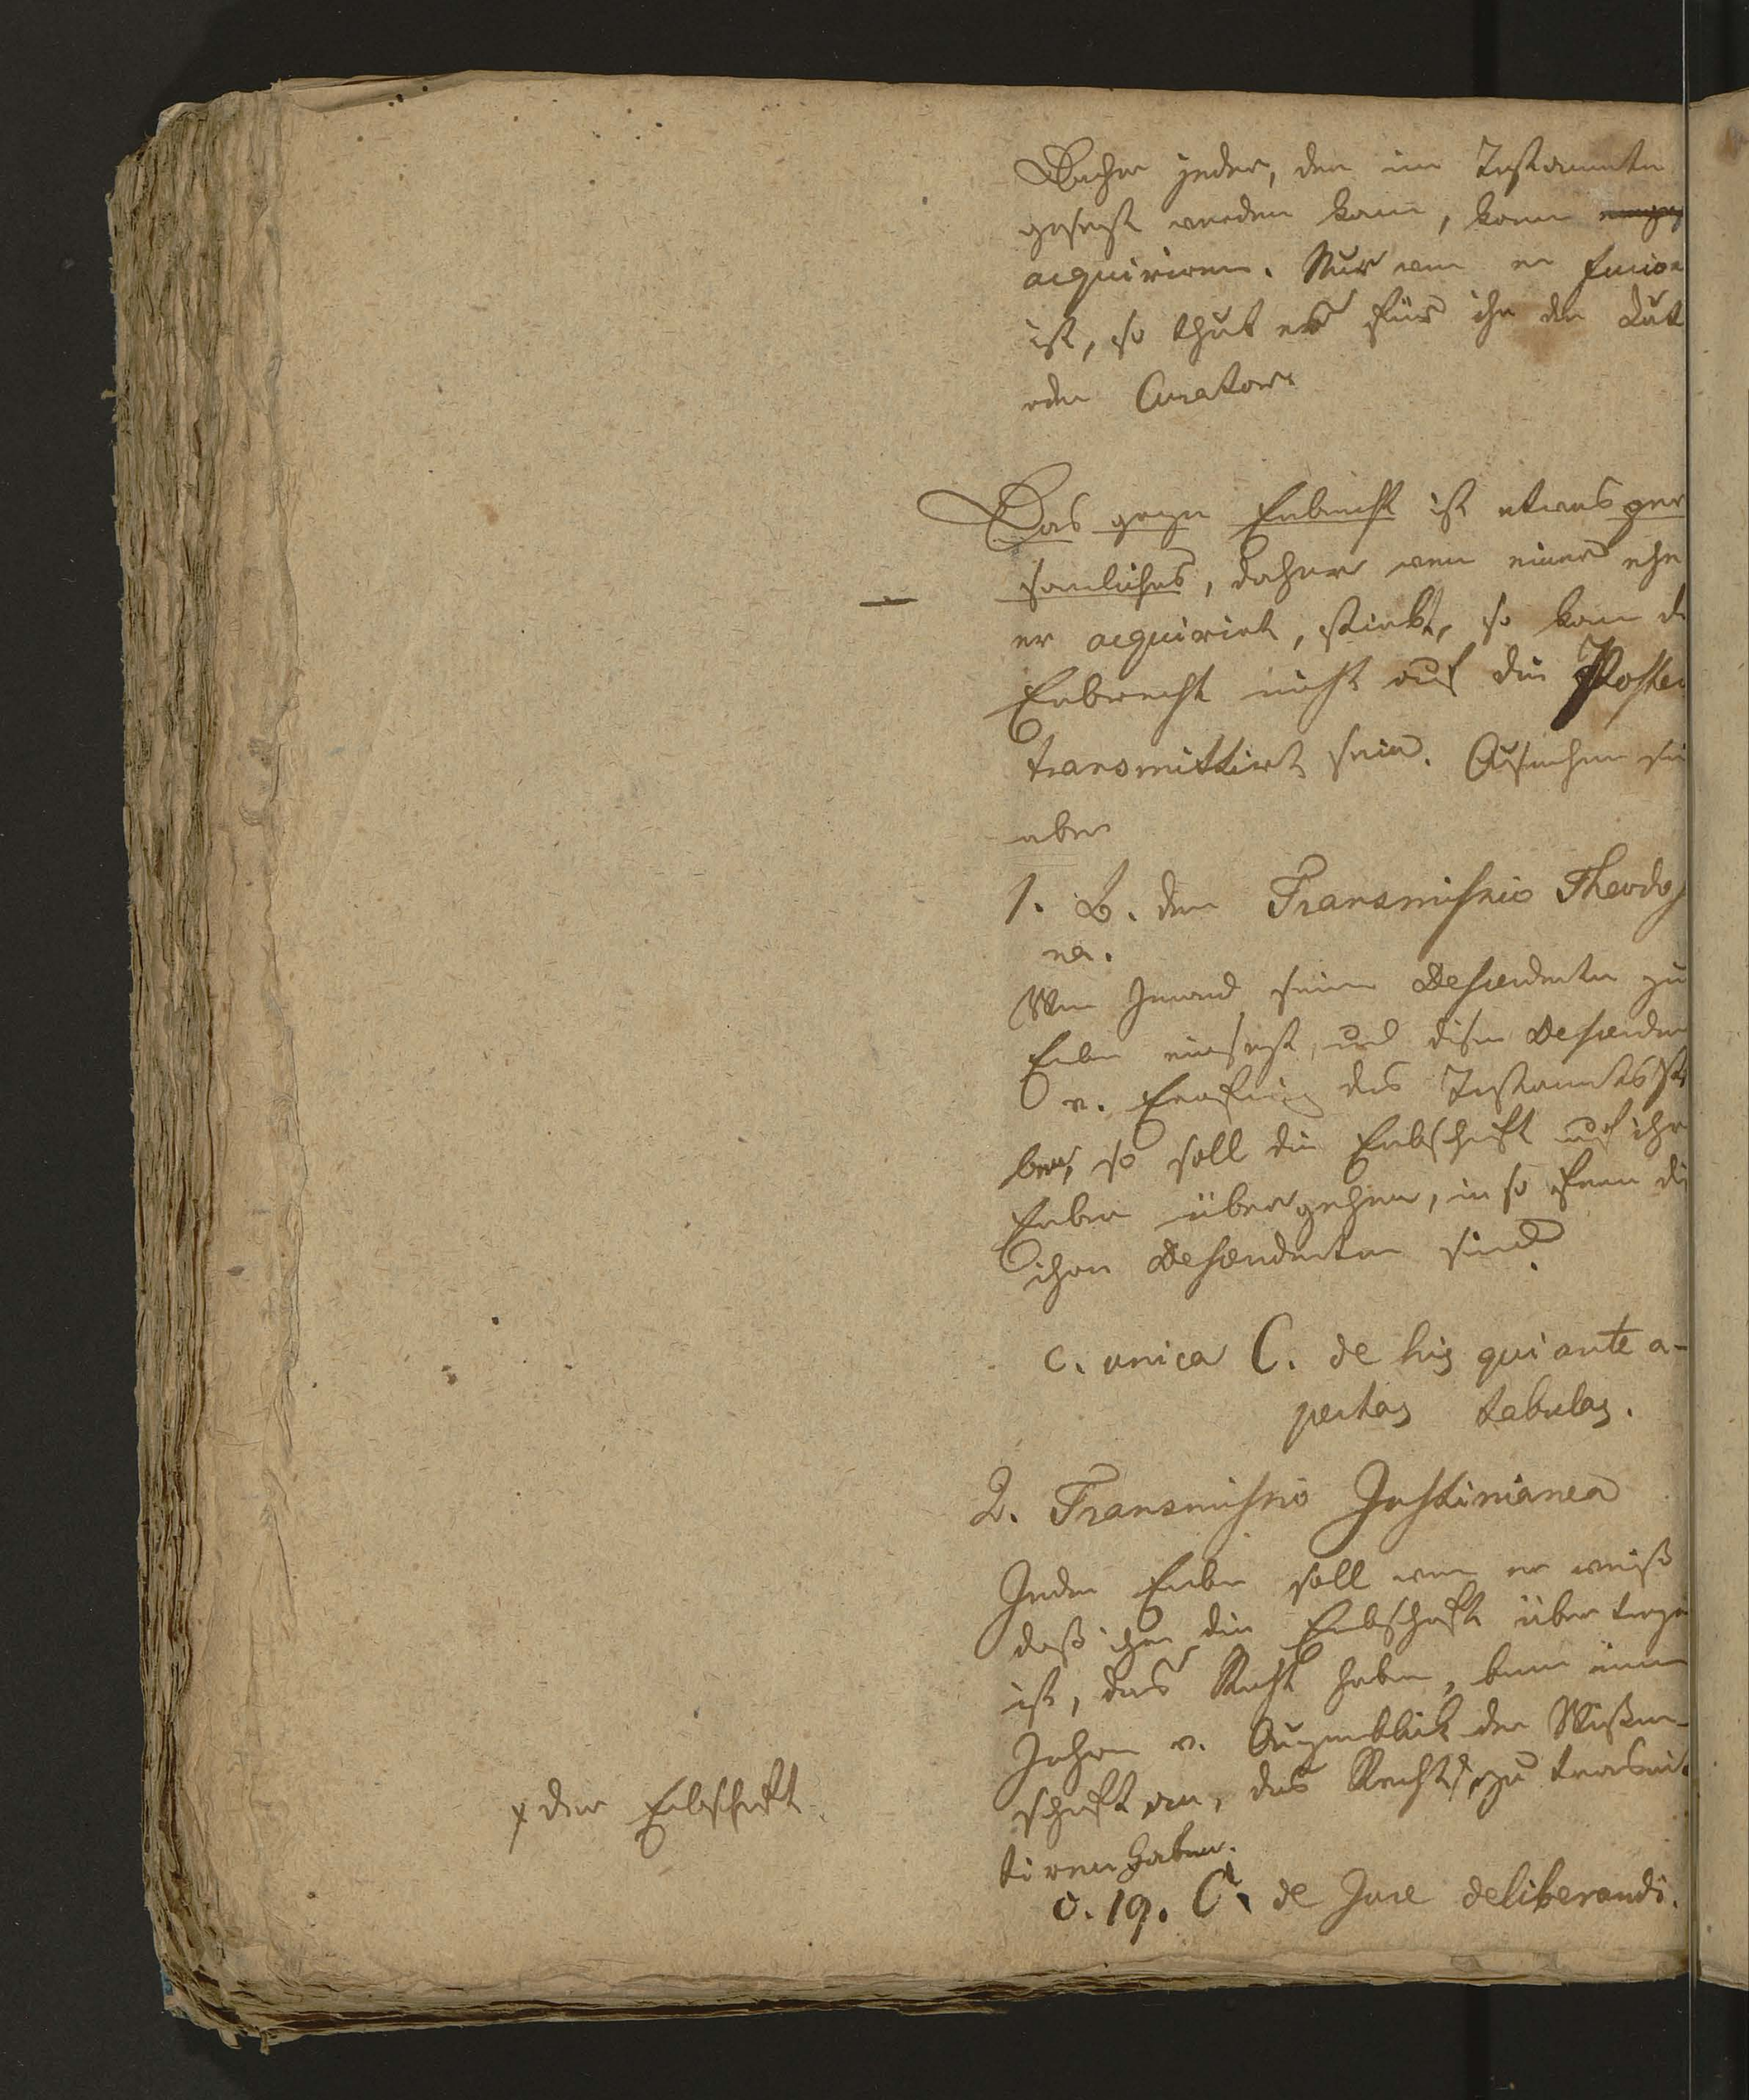 Daher jeder, der im Testamente
gesezt werden kann, kann
acquiriren. Nur wen er furios
ist, so thut es für ihn der Tut
oder Curator.
Das ganze Erbrecht ist etwas per
sonliches, daher wen einer ehe
er acquirirt, stirbt, so kann d
Erbrecht nicht auf die Poster
transmittirt sein. Ausnahmen si
aber
1. B. der Transmissio Theodos
na.
Wen Jemand seine Descendenten zu
Erben einsezt, und diese Descenden
v. Eröffnung des Testaments st
ben, so soll die Erbschaft auf ihre
Erben übergehen, in so fern di
ihre Descendenten sind.
c. unica C. de his qui ante a-
pertas tabulas.
2. Transmissio Justinianea
Jeder Erbe soll wen er weiß
daß ihm die Erbschaft übertrage
ist, das Recht haben, binnen einem
Jahre v. Augenblick der Wissen-
schaft an, das Recht x zu transmit
tiren haben.
x der Erbschaft
c. 19. C. de Jure deliberandi.